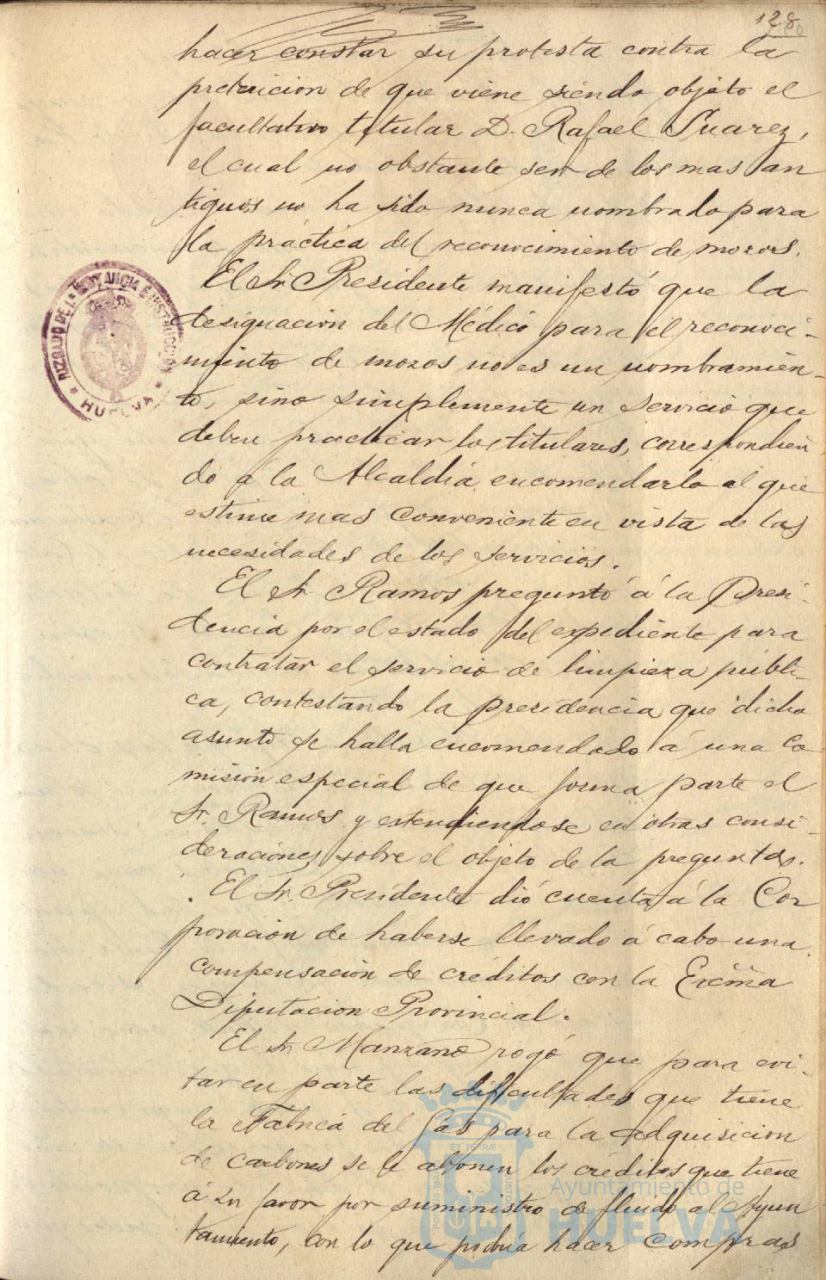 128
hacer constar su protesta contra la
pretericion de que viene siendo objeto el
facultativo titular D. Rafael Suarez,
el cual no obstante ser de los mas an
tiguos no ha sido nunca nombrado para
la práctica del reconocimiento de mozos.
El Sr. Presidente manifestó que la
designación del Médico para el reconoci-
miento de mozos no es un nombramien-
to, sino simplemente un servicio que
deben practicar los titulares, correspondien
do a la Alcaldía encomendarlo al que
estime mas conveniente en vista de las
necesidades de los servicios.
El Sr. Ramos preguntó á la Presi-
dencia por el estado del expediente para
contratar el servicio de limpieza públi-
ca, contestando la presidencia que dicho
asunto se halla encomendado á una co-
misión especial de que forma parte el
Sr. Ramos y estendiendose en otras consi-
deraciones sobre el objeto de la pregunta.
El Sr. Presidente dió cuenta á la Cor
poración de haberse llevado á cabo una
compensación de créditos con la Excma
Diputacion Provincial.
El Sr. Manzano rogó que para evi-
tar en parte las dificultades que tiene
la Fábrica del Gas para la adquisicion
de carbones se le abonen los créditos que tiene
á su favor por suministro de fluido al Ayun
tamiento, con lo que podria hacer compras
JUZGADO DE 1ª INSTANCIA E INSTRUCCION
* HUELVA *
Ayuntamiento de
HUELVA